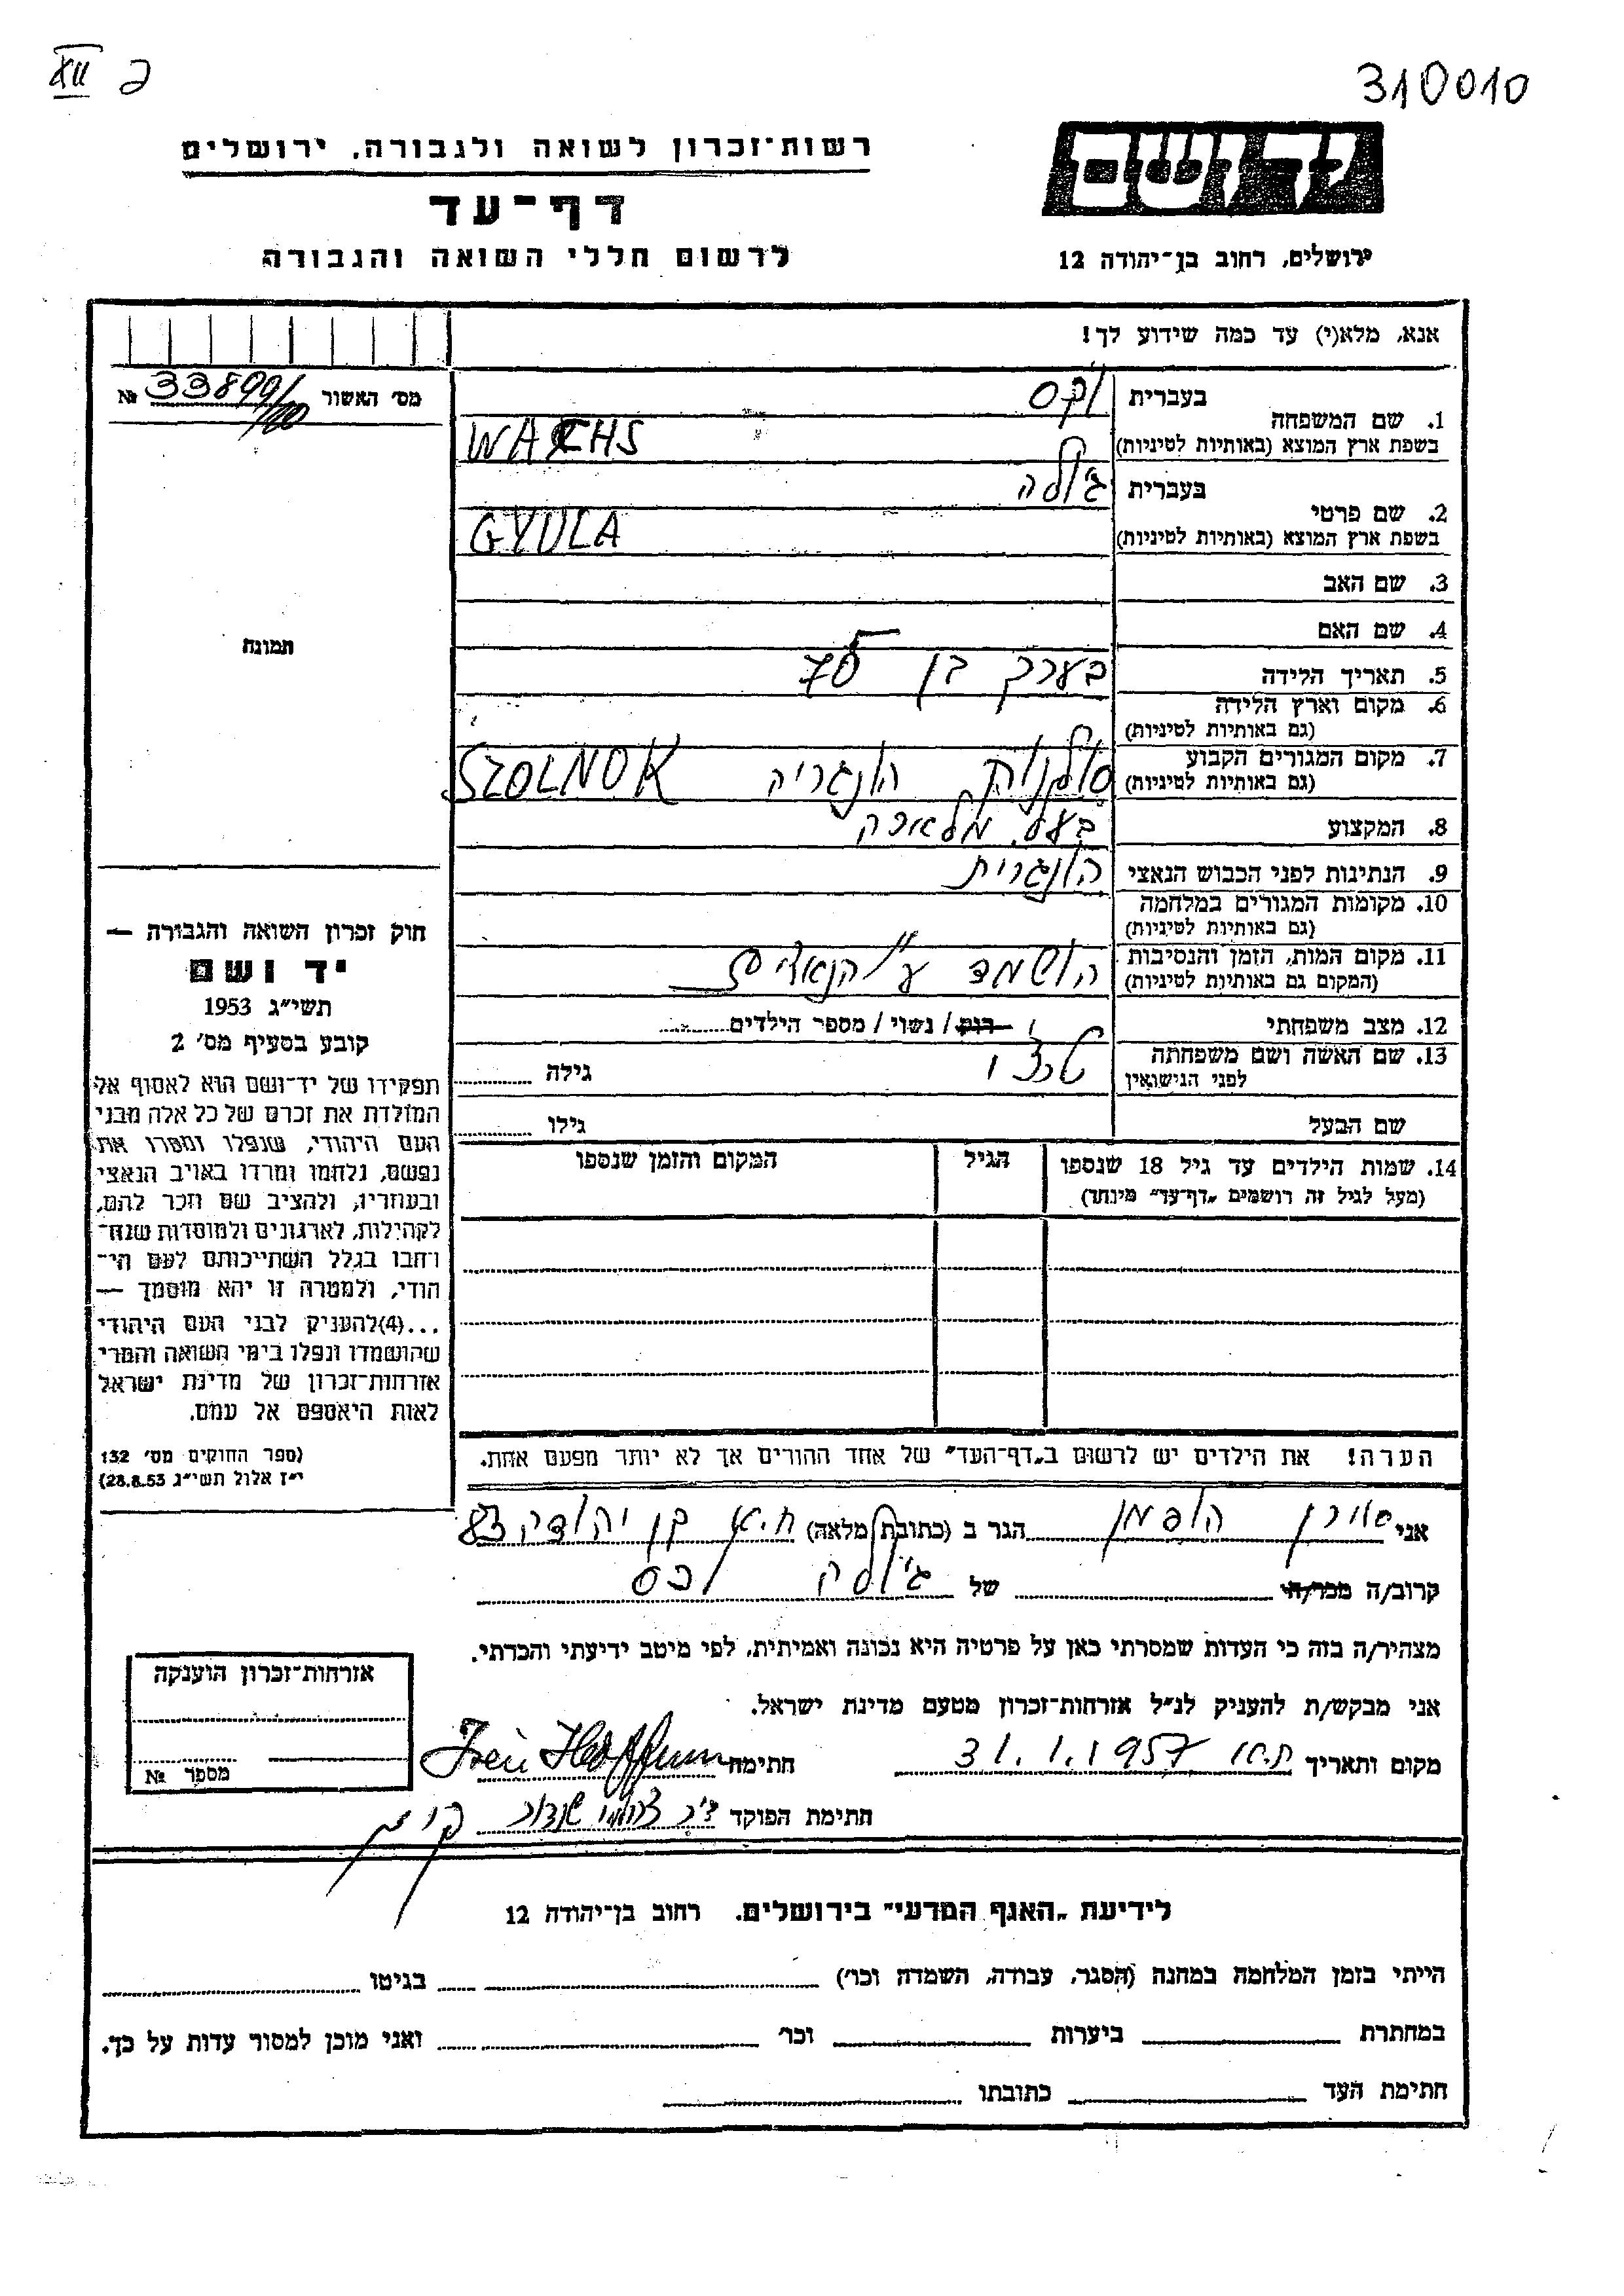 310010
XII
יד ושם
רשות-זכרון לשואה ולגבורה, ירושלים
דף-עד
ירושלים, רחוב בן-יהודה 12
לרשום חללי השואה והגבורה
אנא, מלא(י) עד כמה שידוע לך!
מס' האשור № 33899/
1. שם המשפחה בעברית וקס
בשפת ארץ המוצא (באותיות לטיניות) WACHS
2. שם פרטי בעברית גיולה
בשפת ארץ המוצא (באותיות לטיניות) GYULA
3. שם האב
4. שם האם
תמונה
5. תאריך הלידה בערך בן 70
6. מקום וארץ הלידה
(גם באותיות לטיניות)
7. מקום המגורים הקבוע סולנוק הונגריה SZOLNOK
(גם באותיות לטיניות)
8. המקצוע בעל מלאכה
9. הנתינות לפני הכבוש הנאצי הונגרית
10. מקומות המגורים במלחמה
(גם באותיות לטיניות)
11. מקום המות, הזמן והנסיבות הושמד ע"י הנאצים
(המקום גם באותיות לטיניות)
12. מצב משפחתי רוק / נשוי / מספר הילדים
13. שם האשה ושם משפחתה גילה
לפני הנישואין
שם הבעל גילו
14. שמות הילדים עד גיל 18 שנספו הגיל המקום והזמן שנספו
(מעל לגיל זה רושמים "דף-עד" מיוחד)
חוק זכרון השואה והגבורה —
יד ושם
תשי"ג 1953
קובע בסעיף מס' 2
תפקידו של יד-ושם הוא לאסוף אל
המולדת את זכרם של כל אלה מבני
העם היהודי, שנפלו ומסרו את
נפשם, נלחמו ומרדו באויב הנאצי
ובעוזריו, ולהציב שם וזכר להם,
לקהילות, לארגונים ולמוסדות שנח-
רבו בגלל השתייכותם לעם הי-
הודי, ולמטרה זו יהא מוסמך —
...(4)להעניק לבני העם היהודי
שהושמדו ונפלו בימי השואה והמרי
אזרחות-זכרון של מדינת ישראל
לאות היאספם אל עמם.
(ספר החוקים מס' 132
י"ז אלול תשי"ג 28.8.53)
הערה! את הילדים יש לרשום ב"דף-העד" של אחד ההורים אך לא יותר מפעם אחת.
אני הופמן הגר ב (כתובת מלאה) ת.א בן יהודה 83
קרוב/ה מכר/ה של גיולה וכס
מצהיר/ה בזה כי העדות שמסרתי כאן על פרטיה היא נכונה ואמיתית, לפי מיטב ידיעתי והכרתי.
אני מבקש/ת להעניק לנ"ל אזרחות-זכרון מטעם מדינת ישראל.
מקום ותאריך ת.א 31.1.1957 חתימה
חתימת הפוקד
אזרחות-זכרון הוענקה
מספר №
לידיעת "האגף המדעי" בירושלים, רחוב בן-יהודה 12
הייתי בזמן המלחמה במחנה (הסגר, עבודה, השמדה וכו') בגיטו
במחתרת ביערות וכו' ואני מוכן למסור עדות על כך.
חתימת העד כתובתו